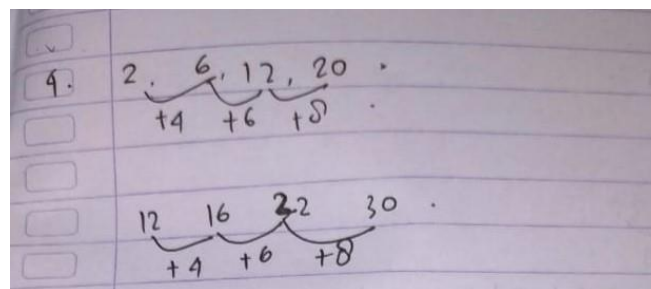 4. 2. 6, 12, 20 .
+4 +6 +8
12 16 22 30 .
+4 +6 +8